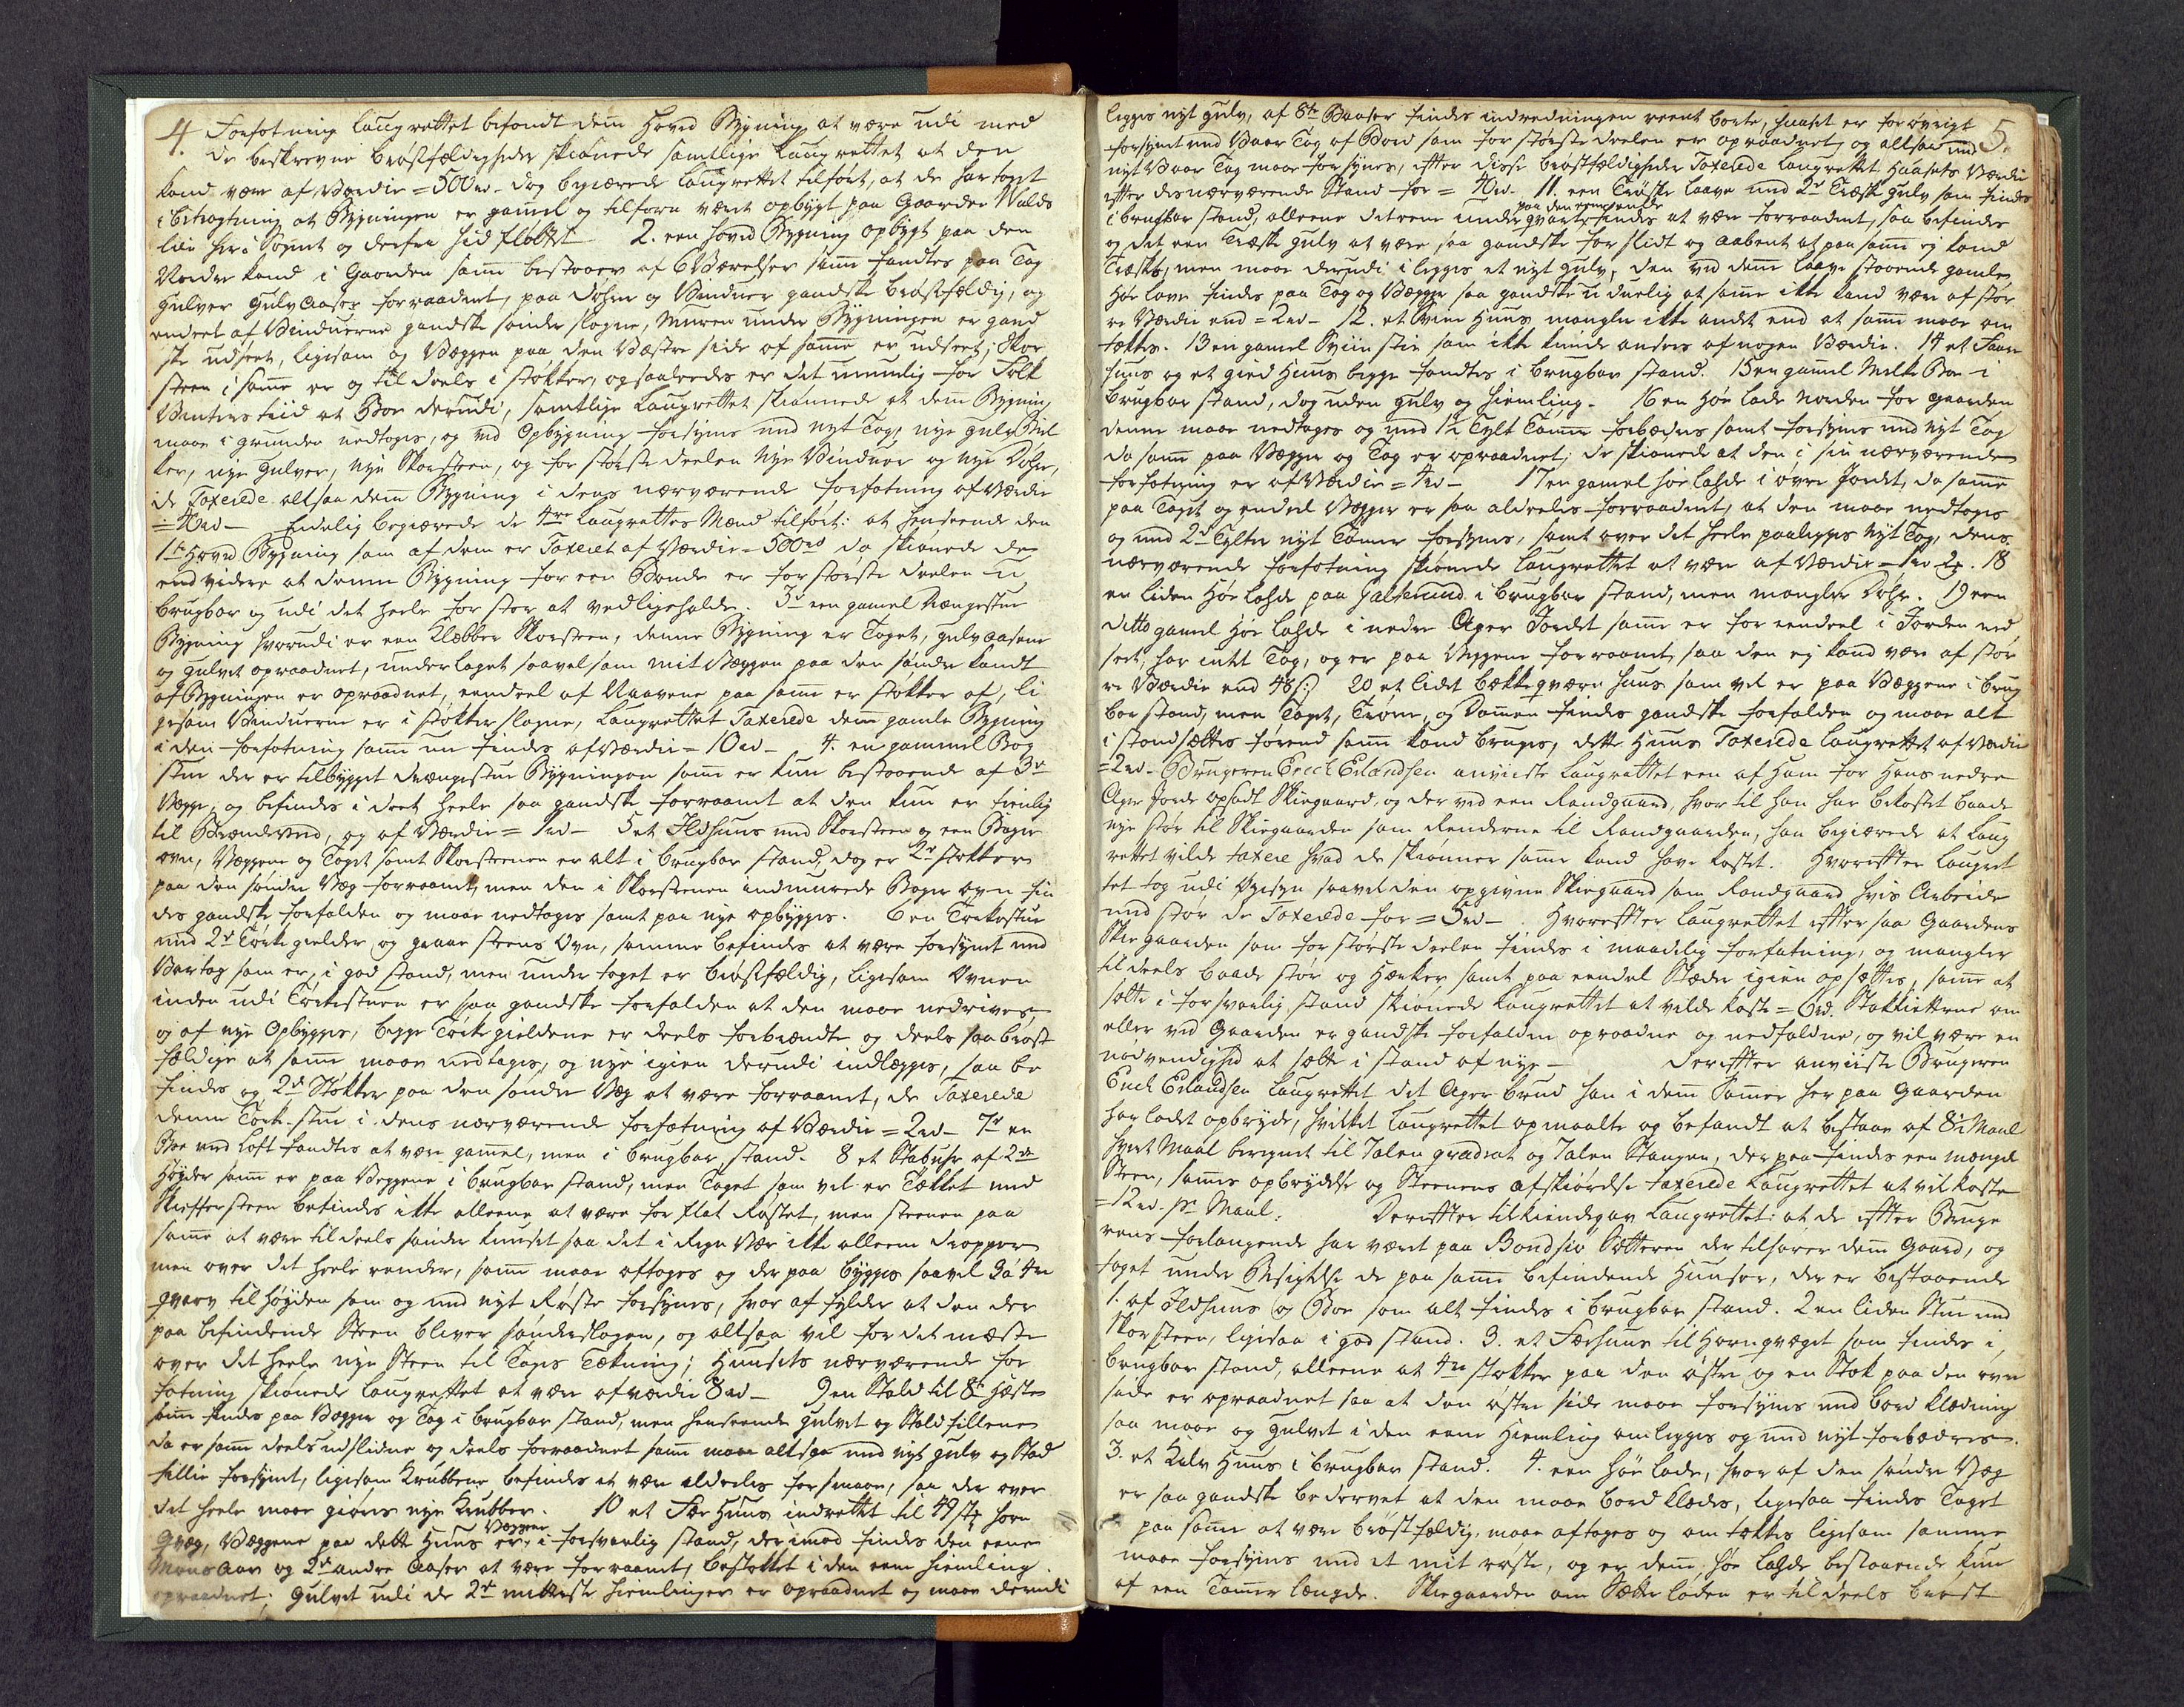 4. Forfatning laugrettet befandt denne Hoved Bygning at være udi med
de beskrevne brøstfældigheder skiønnede samtlige laugrettet at den
kand være af Værdie = 500 rd - dog begiærede laugrettet tilført, at de har taget
i betragtning at Bygningen er gamel og tilforn været opbygt paa Gaarden Walds
lien her i Sognet og derfra hid flottet 2. een hoved Bygning opbygt paa den
Nordre kand i Gaarden samme bestaaer af 6 Værelser samme fandtes paa Tag
gulver gulv Aaser forraadnet, paa Døhre og Vinduer gandske brøstfældig, og
endeel af Vinduerne gandske sønder slagne, Muren under Bygningen er gand
ske udseet, ligesom og Væggen paa den Væstre side af samme er udseet; Skor
steen i samme er og til deels i støkker, og saaledes er det umuelig for Folk
Vinters tiid at Boe derudi, samtlige Laugrettet skiønnede at denne Bygning
maae i grunden nedtages, og ved Opbygning forsynes med nyt Tag, nye gulv Biel
ker, nye gulver, nye Skorsteen, og for største deelen Nye Vinduer og nye Døhre,
de Taxerede altsaa denne Bygning i dens nærværende forfatning af Værdie
= 40 rd - Endelig begiærede de 4re Laugrettes Mænd tilført: at henseende den
1te Hoved Bygning som af dem er Taxeret af Værdie = 500 rd da skiønnede de
end videre at denne Bygning for een Bonde er for største deelen u
brugbar og udi det heele for stor at vedligeholde. 3de een gamel Drængestue
Bygning hvorudi er een Klæbber Skorsteen, denne Bygning er Taget, gulv aasene
og gulvet opraadnet, underlaget saavelsom mit Væggen paa den søndre kandt
af Bygningen er opraadnet, eendeel af Naavene paa samme er støkker af, li
gesom Vinduerne er i støkker slagne, Laugrettet Taxerede denne gamle Bygning
i den forfatning samme nu findes af Værdie = 10 rd - 4. en gammel Bag
stue der er tilbygget Drængestue Bygningen samme er kun bestaaende af 3de
Vægge, og befindes i deet heele saa gandske forraanet at den kun er tienlig
til Brændeved, og af Værdie = 1 rd - 5 et Ildhuus med Skorsteen og een Bager
ovn, Væggene og Taget samt Skorsteenen er alt i brugbar stand, dog er 2de stokker
paa den søndre Væg forraanet, men den i Skorsteenen indmurede Bager ovn fin
des gandske forfalden og maae nedtages samt paa nye opbygges. 6 en Tørkestue
med 2de Tørke gielder og graae steens Ovn, samme befindes at være forsynet med
Bartag som er i god stand, men under taget er brøstfældig, ligesom Ovnen
inden udi Tørkestuen er saa gandske forfalden at den maae nedrives
og af nye Opbygges, begge Tørkegieldene er deels forbrændte og deels saa brøst
fældige at samme maae nedtages, og nye igien derudi indlægges, saa be
findes og 2de Stokker paa den søndre Væg at være forraanet, de Taxerede
denne Tørk-stue i dens nærværende forfatning af Værdie = 2 rd - 7de en
Boe med Loft fandtes at være gamel, men i brugbar stand. 8 et Stabuhr af 2de
Høyder samme er paa Veggene i brugbar stand, men Taget som vel er Tækket med
Skiffersteen befindes ikke alleene at være for flat Røstet, men steenen paa
samme at være til deels sønder knuset saa det i Regn Vær ikke alleene dropper
men over det heele render, samme maae aftages og der paa bygges saavel 3 á 4re
qvarv til Høyden som og med nyt Røste forsynes, hvor af følger at den der
paa befindende Steen bliver sønderslagen, og altsaa vil for det meste
over det heele nye Steen til Tagets Tækning; Huusets nærværende for
fatning skiønnede laugrettet at være af værdie 8 rd - 9 en Stald til 8te Hæste
samme findes paa Vægger og Tag i brugbar stand, men henseende gulvet og Stald fillene
da er samme deels udslidne og deels forraadnet samme maae altsaa med nyt gulv og Stald
fillie forsynet, ligesom Krubbene befindes at være aldeeles forsmaae, saa der over
det heele maae giøres nye Krubber. 10 et Fæe Huus indrettet til 49 stk horn
qvæg, Væggene paa dette Huus er i forsvarlig stand, derimod findes den eene
Mønsaas og 2de andre Aaser at være forraanet, bestøttet i den eene hiemling
opraadnet; gulvet udi de 2de mitterste Hiemlinger er opraadnet og maae derudi
5.
legges nyt gulv, af 8te Baaser findes indredningen reent borte, huuset er for øvrigt
forsynet med Baar Tag af Bord som for største deelen er opraadnet, og altsaa med
nyt Baar Tag maae forsynes, efter disse brøstfældigheder Taxerede laugrettet Huusets Værdie
efter des nærværende Stand for = 40 rd. 11. een Trøske laave med 2de Træske gulv som findes
paa den eene ende
i brugbar stand, alleene det eene under qvart findes at være forraadnet, saa befindes
og det een Træske gulv at være saa gandske forslidt og aabent at paa samme ey kand
Træskes, men maae derudi i legges et nyt gulv, den ved denne laave staaende gamle
Høe lave findes paa Tag og Vægge saa gandske u duelig at samme ikke kand være af stør
re Værdie end = 2 rd - 12. et Svine Huus mangler ikke andet end at samme maae om
tækkes. 13 en gamel Sviin stie som ikke kunde ansees af nogen Værdie. 14 et Faare
huus og et gied Huus begge fandtes i brugbar stand. 15 en gamel Melke Boe i
brugbar stand, dog uden gulv og hiemling. 16 en Høe lade Norden for gaarden
denne maae nedtages og med 1/2 Tylt Tømmer forbædres samt forsynes med nyt Tag
da samme paa Vægger og Tag er opraadnet; de skiønnede at den i sin nærværende
forfatning er af Værdie = 4 rd - 17 en gamel høe lahde i øvre Jordet, da samme
paa Taget og endeel Vægger er saa aldeeles forraadnet, at den maae nedtages
og med 2de Tylter nyt Tømmer forsynes, samt over det heele paalegges nyt Tag, dens
nærværende forfatning skiønnede laugrettet at være af Værdie = 1 rd 2 . 18
en liden Høe lahde paa Galterund i brugbar stand, men mangler Døhr. 19 een
ditto gamel Høe lahde i nedre Ager Jordet samme er for eendeel i Jorden ned
seet, har intet Tag, og er paa Veggene forraanet, saa den ej kand være af stør
re Værdie end 48 s. 20 et lidet bække qværn huus som vel er paa Væggene i brug
bar stand, men Taget, Trøene, og Dammen findes gandske forfalden og maae alt
i stand sættes førend samme kand bruges, dette Huus Taxerede laugrettet af Værdie
= 2 rd - Brugeren Erich Erlandsen anviiste Laugrettet een af Ham for Hans nedre
Ager Jorde opsadt Skiegaard, og der ved een Randgaard, hvor til han har bekostet baade
nye stør til Skiegaarden som Renderne til Randgaarden, han begiærede at Laug
rettet vilde taxere hvad de skiønner samme kand have kostet. Hvorefter laugret
tet tog udi Øyesyn saavel den opgivne Skiegaard som Randgaard hvis Arbeide
med stør de Taxerede for = 5 rd - Hvorefter laugrettet eftersaa Gaardens
Skiegaarden som for største deelen findes i maadelig forfatning, og mangler
til deels baade stør og Hanker samt paa eendeel Stæder igien opsættes, samme at
sætte i forsvarlig stand skiønnede laugrettet at vilde koste = 6 rd. Stakkittene om
eller ved Gaarden er gandske forfalden opraadne og nedfaldne, og vil være en
nødvendighed at sætte i stand af nye - Derefter anviiste Brugeren
Erich Erlandsen laugrettet det Ager brud han i denne Sommer her paa Gaarden
har ladet opbryde, hvilket laugrettet opmaalte og befandt at bestaae af 8½ Maal
hvert Maal beregnet til 7 alen qvadrat og 7 alen Stangen, der paa findes een mængde
Steen, samme opbrydelse og Steenens afskiørdse taxerede laugrettet at vil koste
= 12 rd. pr Maal: Derefter tilkiendegav laugrettet: at de efter Bruge
rens forlangende har været paa Bondsiø Sætteren der tilhører denne Gaard, og
taget under Besigtelse de paa samme befindende Huuser, der er bestaaende
1. af Ildhuus og Boe som alt findes i brugbar stand. 2 en liden Stue med
Skorsteen, ligesaa i god stand. 3. et Fæehuus til Hornqvæget som findes i
brugbar stand, alleene at 4re stokker paa den østre og en Stok paa den øvre
side er opraadnet saa at den østre side maae forsynes med bord klædning
saa maae og gulvet i den eene Hiemling omlegges og med nyt forbædres.
3. et Kalv Huus i brugbar stand. 4. een Høe lade, hvor af den søndre Væg
er saa gandske bedærvet at den maae bord klædes, ligesaa findes Taget
paa samme at være brøstfældig, maae aftages og om tækkes ligesom samme
maae forsynes med et mit røste, og er denne høe lahde bestaaende kun
af een Tømmer længde. Skiegaarden om Sætter løkken er til deels brøst